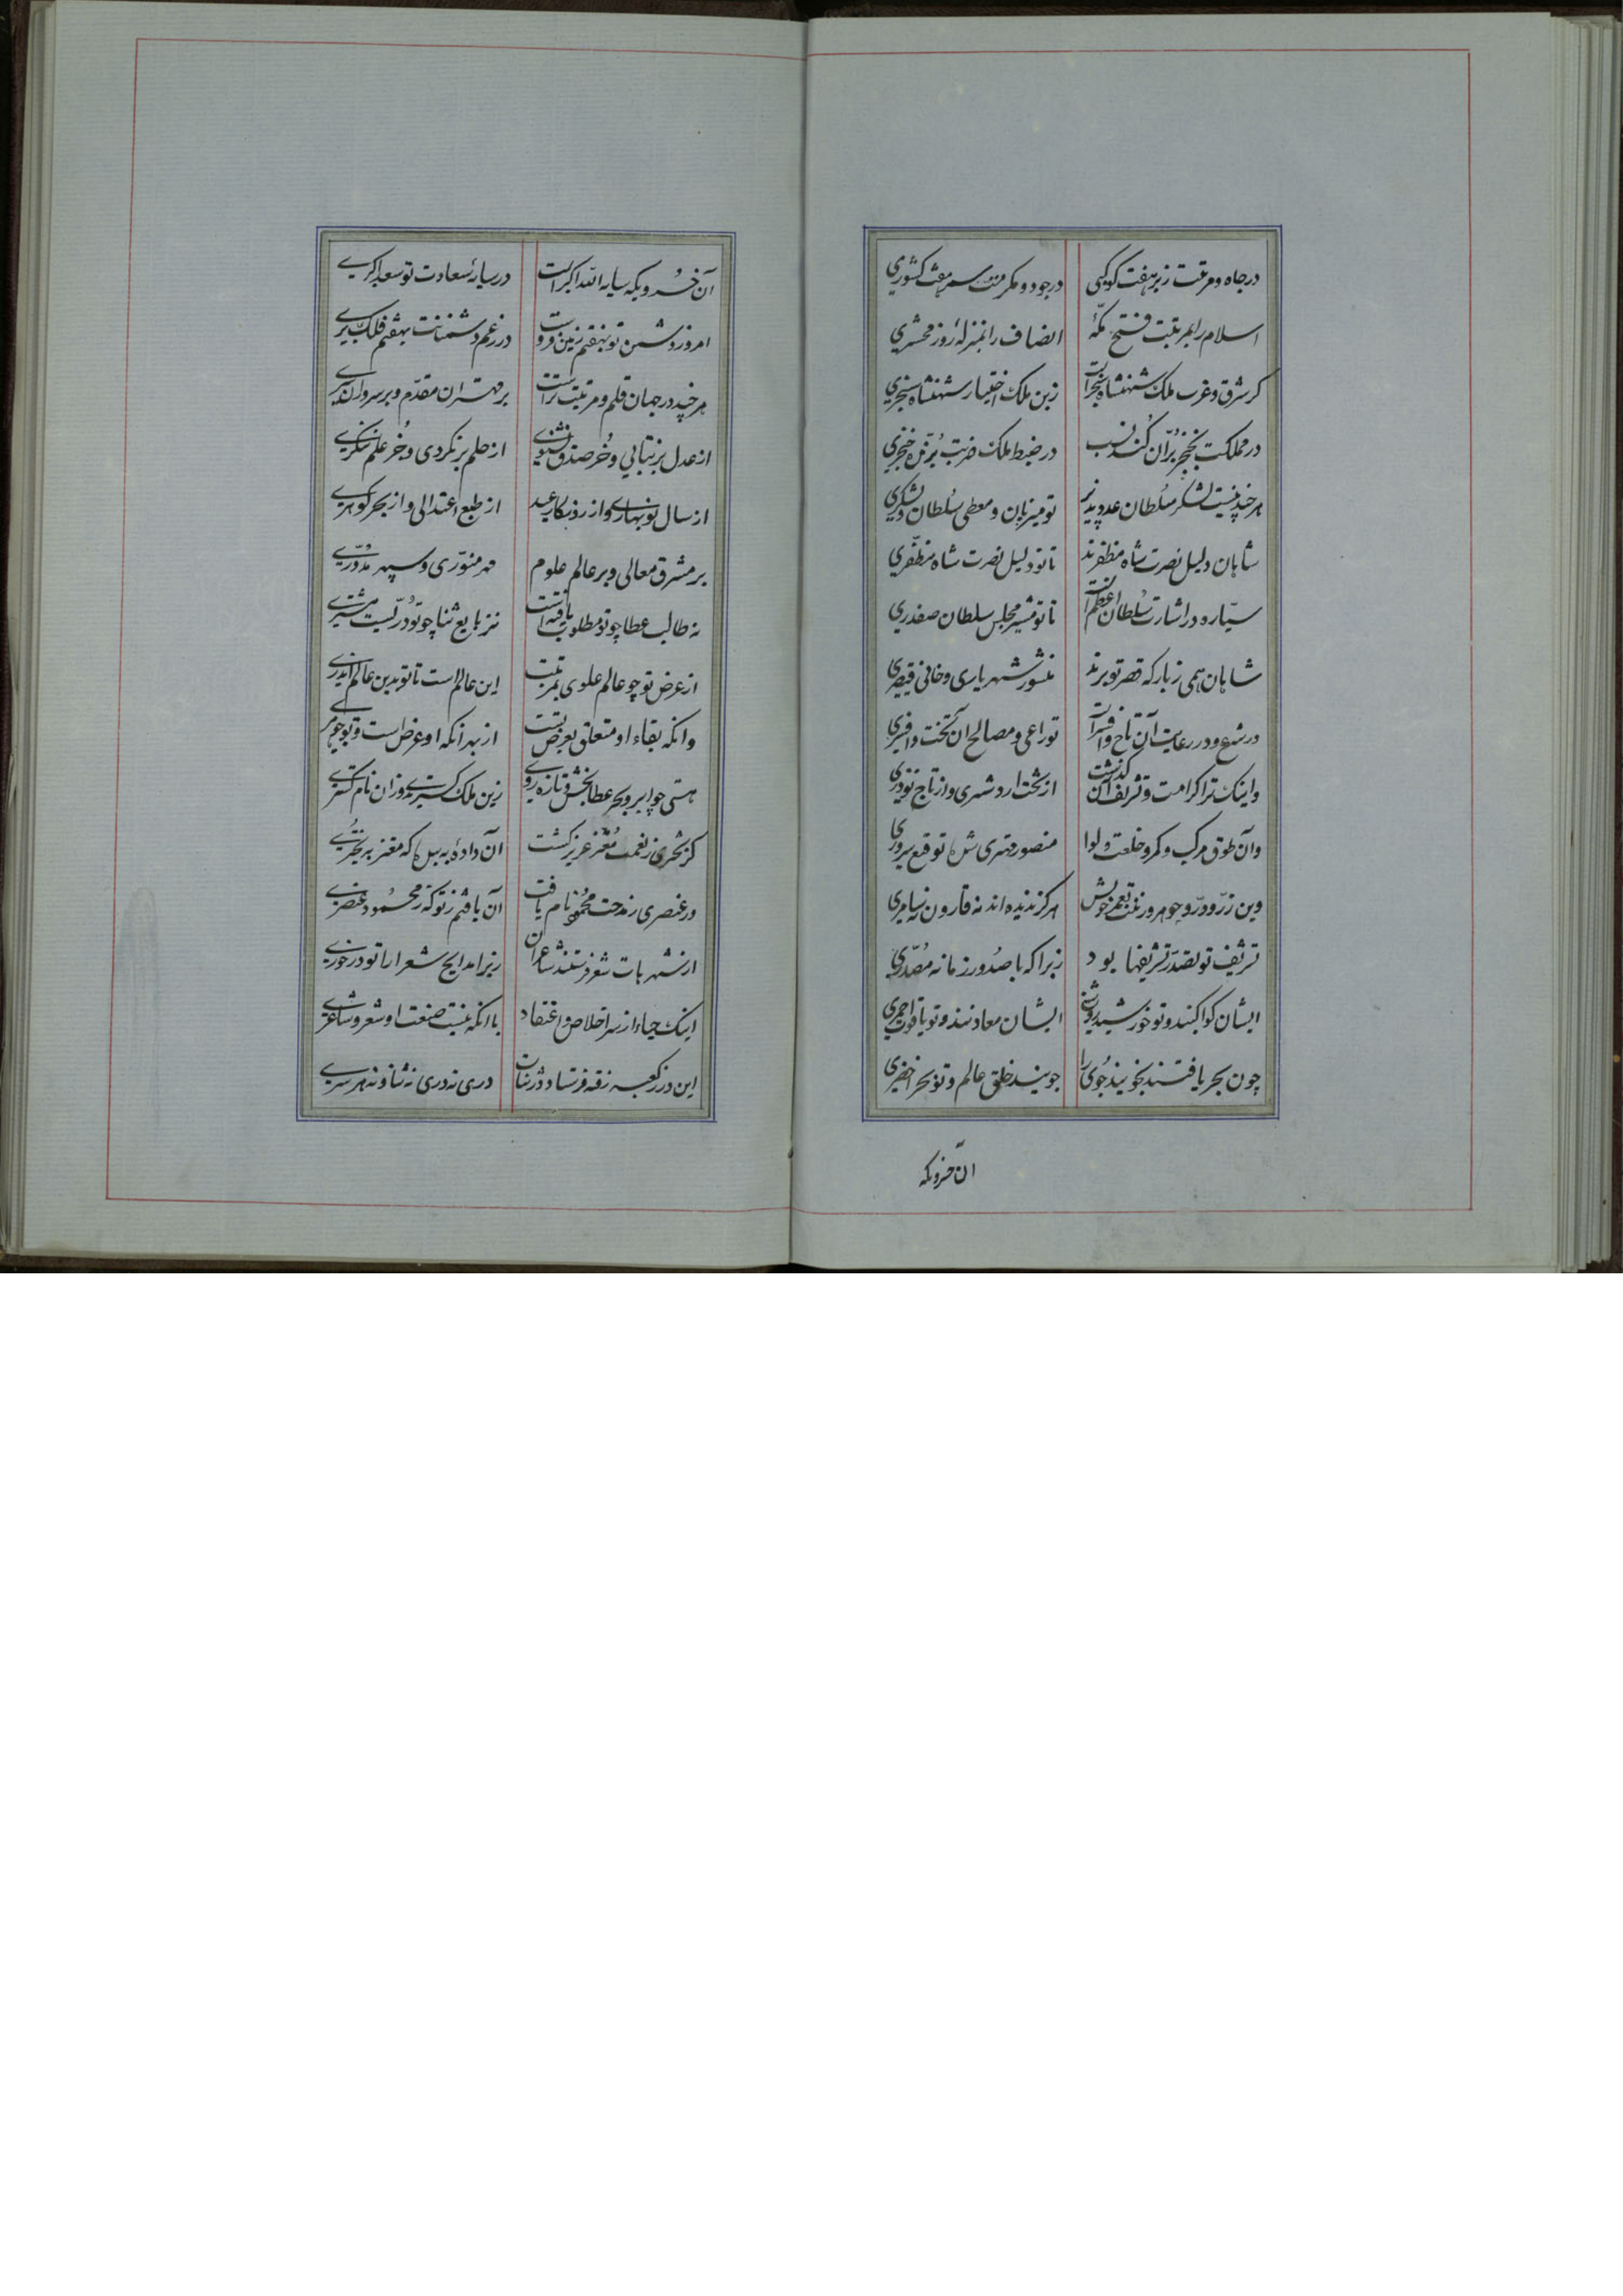 درجاه ومرتبت زبر هفت کوکبی درجود ومکرمت سر هفت کشوری
اسلام را بمرتبت فتح مکّهٔ انصاف را بمنزلهٔ روز محشری
کر شرق وغرب ملک شهنشاه سنجر است زین ملک اختیار شهنشاه سنجری
در مملکت بخنجر برّان کنند در ضبط ملک ضربت برّنده خنجری
هرچند نیست لشکر سلطان عدد پذیر تو میزبان ومعطی سلطان ولشکری
شاهان دلیل نصرت شاه مظفرند تا تو دلیل نصرت شاه مظفّری
سیّاره در اشارت سلطان اعظم است تا تو مشیر مجلس سلطان صفدری
شاهان همی زبارکه قصر تو برند منشور شهریاری وخانی وقیصری
در شرع ودر رعایت آن تاج وافسر است تو راعی ومصالح ان تخت وافسری
واینک ترا کرامت وتشریف ان کذشت از تخت اردشیری واز تاج نوذری
وآن طوق مرکب وکمر وخلعت ولوا منصور مهتری توقیع سروری
وین زرّ ودرّ وجوهر وزینت بعمر خویش هرکز ندیده اند نه قارون نه سامری
تشریف تو بصدر تشریفها بود زیرا که با صدور زمانه مصدّری
ایشان کواکبند وتو خورشید روشنی ایشان معادنند وتو یاقوت احمری
چون بحر یافتند نجویند جوی را جویند خلق عالم وتو بحر اخضری
آن خسرویکه
آن خسرویکه سایه الله اکبر است در سایهٔ سعادت تو سعد اکبری
امروز دشمن تو بهفتم زمین فروست در زعم دشمنانت بهفتم فلک بری
هرچند در جهان قلم ومرتبت تراست بر مهتران مقدّم وبر سروران سری
از عدل بر نتابی وجُز صدق نشنوی از حلم بر نکردی وجُز علم ننکری
از سال نوبهاری واز روزکار عید از طبع اعتدالی واز بحر کوهری
بر مشرق معالی وبر عالم علوم مهر منوّری وسپهر مدوّری
نه طالب عطا چو تو مطلوب یافته است نز بایع ثنا چو تو دریست مشتری
از عرض تو چو عالم علوی بمرتبت این عالم است تا تو بدین عالم اندری
وانکه بقاء او متعلق بعرض تست از بهر انکه او عرض است وتو جوهری
هستی چو ابر وبحر عطا بخش وتازه روی زین ملک کستریدی وزان نام کستری
کز بحتری زنعمت معتز عزیز کشت آن دادهٔ به بیش که معتز به بحتری
ور عنصری زمدحت محمود نام یافت آن یافتم زتو که زمحمود عنصری
از شهرهات شعر فرستند شاعران زیرا مدایح شعرا را تو در خوری
اینک حیاء از سر اخلاص واعتقاد با انکه نیست صنعت او شعر وشاعری
این در زکعبه رقعه فرستاد در ثنات دری نه دری نه ثنا ونه هر سری